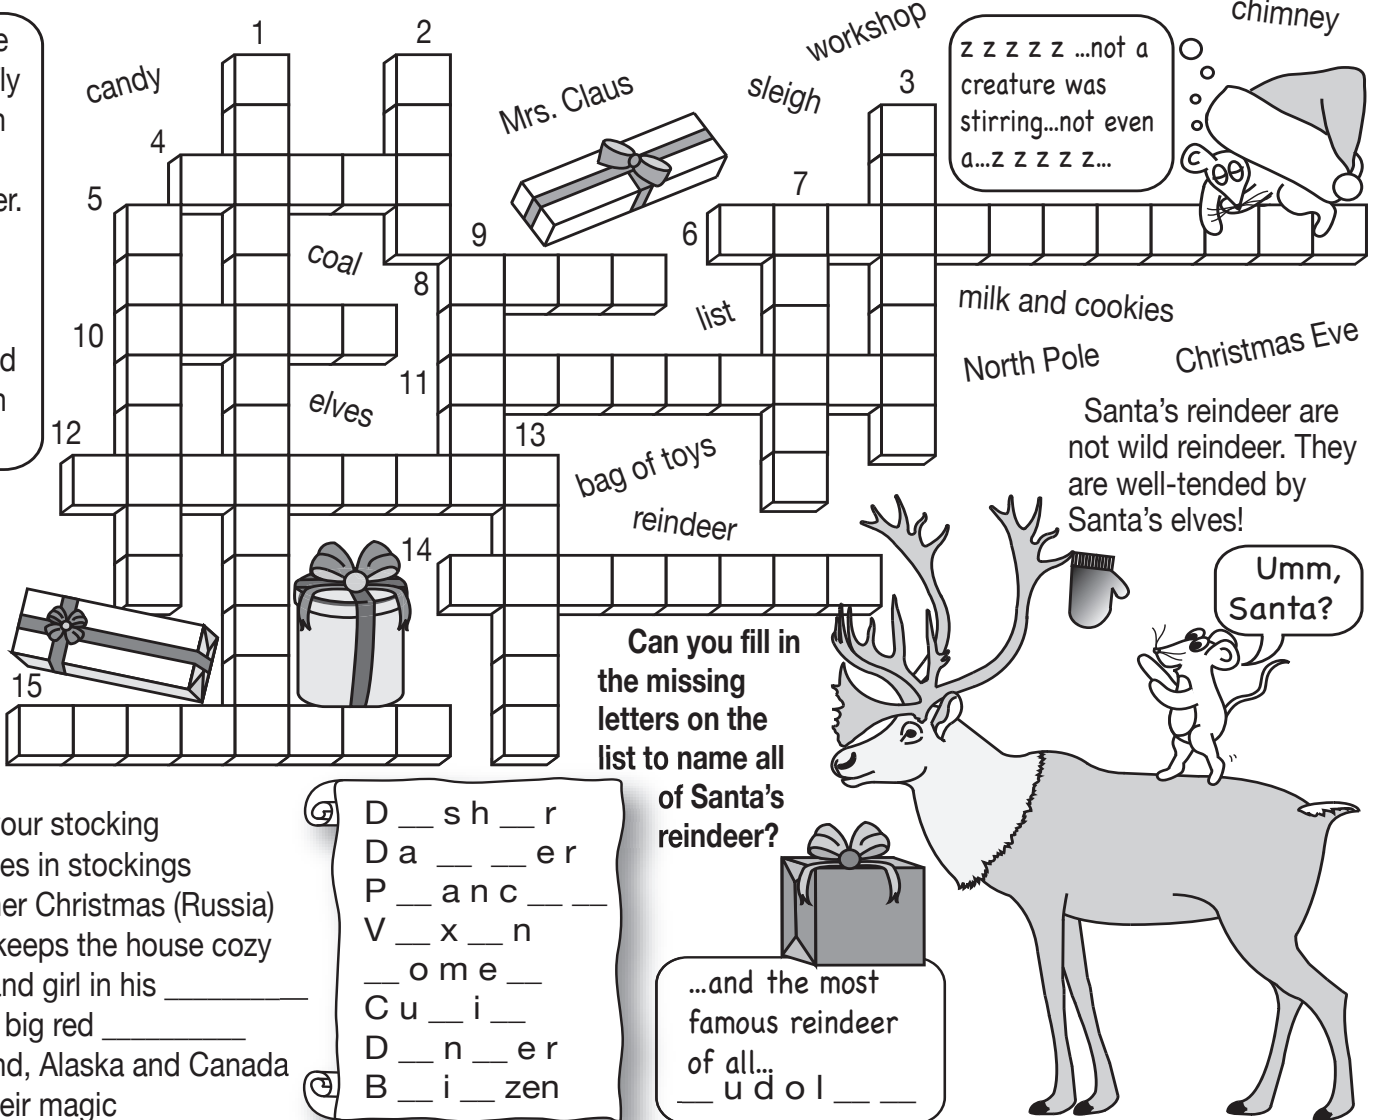 e
ly
n
er.
d
n
1
2
candy
4
5
coal
10
elves
12
15
Mrs. Claus
9
8
11
13
14
workshop
sleigh
3
7
6
list
bag of toys
reindeer
z z z z z ...not a
creature was
stirring...not even
a...z z z z z...
chimney
milk and cookies
North Pole
Christmas Eve
Santa's reindeer are
not wild reindeer. They
are well-tended by
Santa's elves!
Umm,
Santa?
Can you fill in
the missing
letters on the
list to name all
of Santa's
reindeer?
our stocking
es in stockings
er Christmas (Russia)
keeps the house cozy
and girl in his __________
big red __________
nd, Alaska and Canada
eir magic
D __ s h __ r
D a __ __ e r
P __ a n c __ __
V __ x __ n
__ o m e __
C u __ i __
D __ n __ e r
B __ i __ zen
...and the most
famous reindeer
of all...
__ u d o l __ __